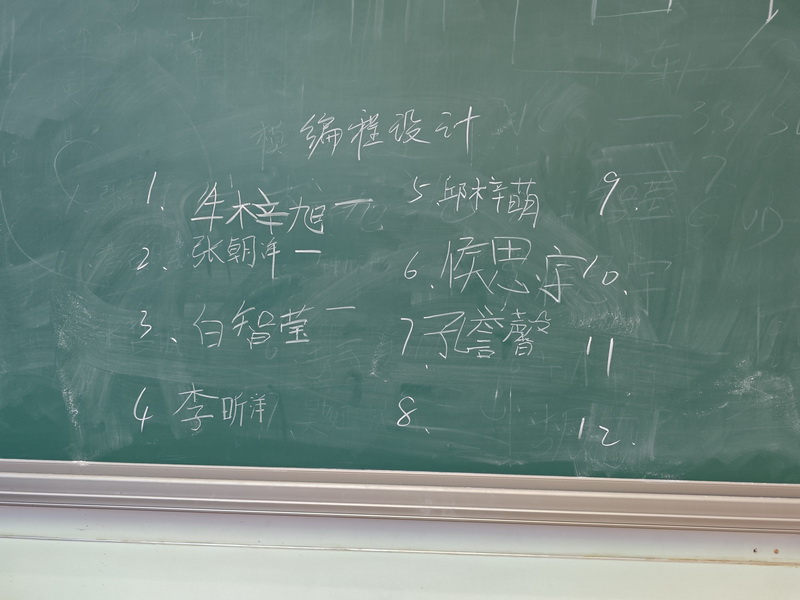 编程设计
1. 牛梓旭一
2. 张朝洋一
3、白智莹一
4 李昕洋
5 邱梓萌
6、侯思宇
7.孔誉馨
8、
9.
10.
11
12.